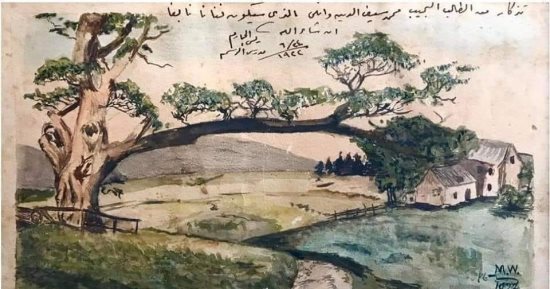 تذكار من الطالب النجيب محمد سيف الدين وانلى الذى سيكون فنانا نابغا
ان شاء الله
٦/٢٤
١٩٢٢ مدرس الرسم
M.W.